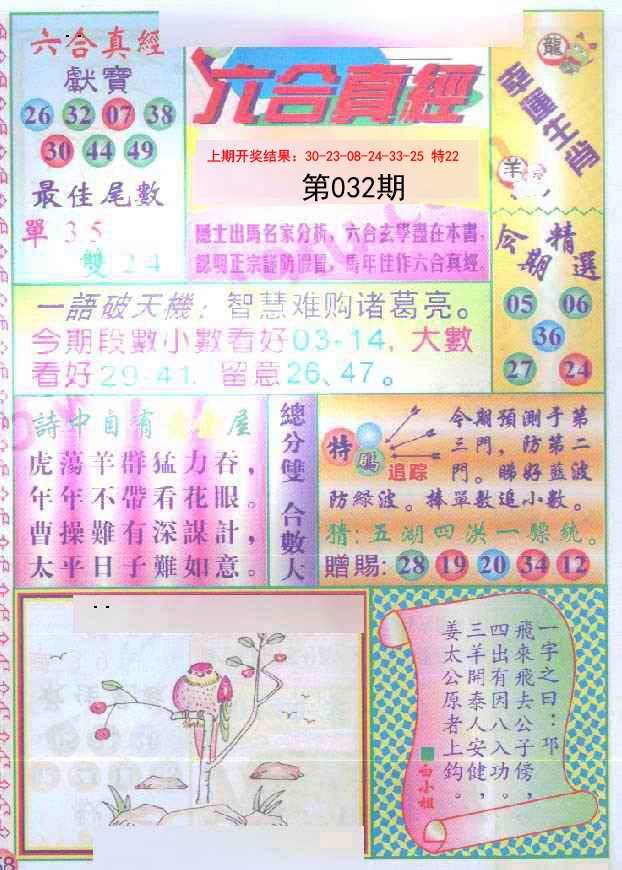 六合真經
獻寶
26 32 07 38
30 44 49
最佳尾數
單 35
雙 24
六合真經
上期开奖结果：30-23-08-24-33-25 特22
第032期
隱士出馬名家分析，六合玄學盡在本書，
認明正宗謹防假冒，馬年佳作六合真經。
龍
幸運生肖
羊
今期精選
05 06
36
27 24
一語破天機：智慧难购诸葛亮。
今期段數小數看好03-14，大數
看好29-41，留意26、47。
詩中自有 屋
虎蕩羊群猛力吞，
年年不帶看花眼。
曹操難有深謀計，
太平日子難如意。
總分雙 合數大
特
追踪
今期預測于第
三門，防第二
門。睇好藍波
防綠波。捧單數追小數。
猜：五湖四洪一縣統。
贈賜：28 19 20 34 12
一字之曰：邛
飛來飛去公子傍，
四出有因八入功。
三羊開泰人安健，
姜太公原者上鈎。
白小姐
58